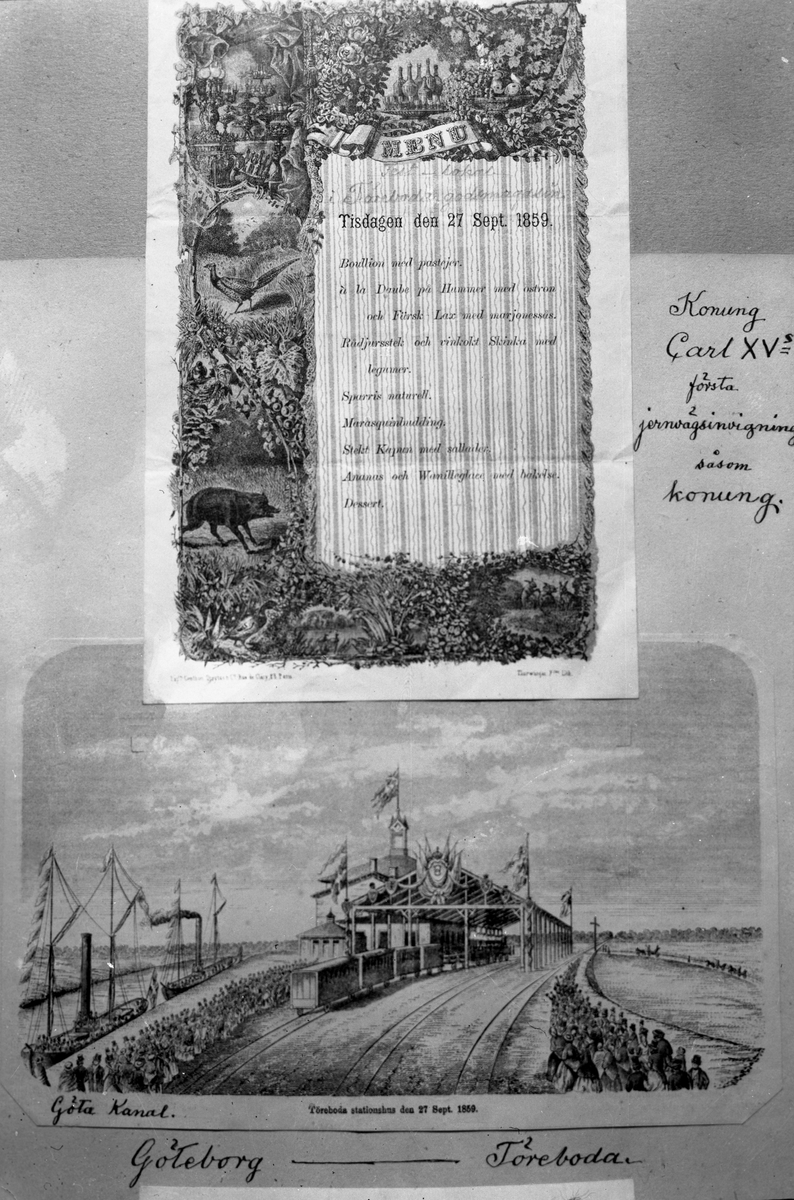 MENU
Fest-Lokal
i Töreboda godsmagasin.
Tisdagen den 27 Sept. 1859.
Boullion med pastejer.
à la Daube på Hummer med ostron
och Färsk Lax med marjonessås.
Rådjursstek och vinkokt Skinka med
legumer.
Sparris naturell.
Marasquinbudding.
Stekt Kapun med sallader.
Ananas och Wanilleglace med bakelse.
Dessert.
Konung
Carl XVs
första
jernvägsinvigning
såsom
konung.
Göta Kanal.
Töreboda stationshus den 27 Sept. 1859.
Göteborg — Töreboda.